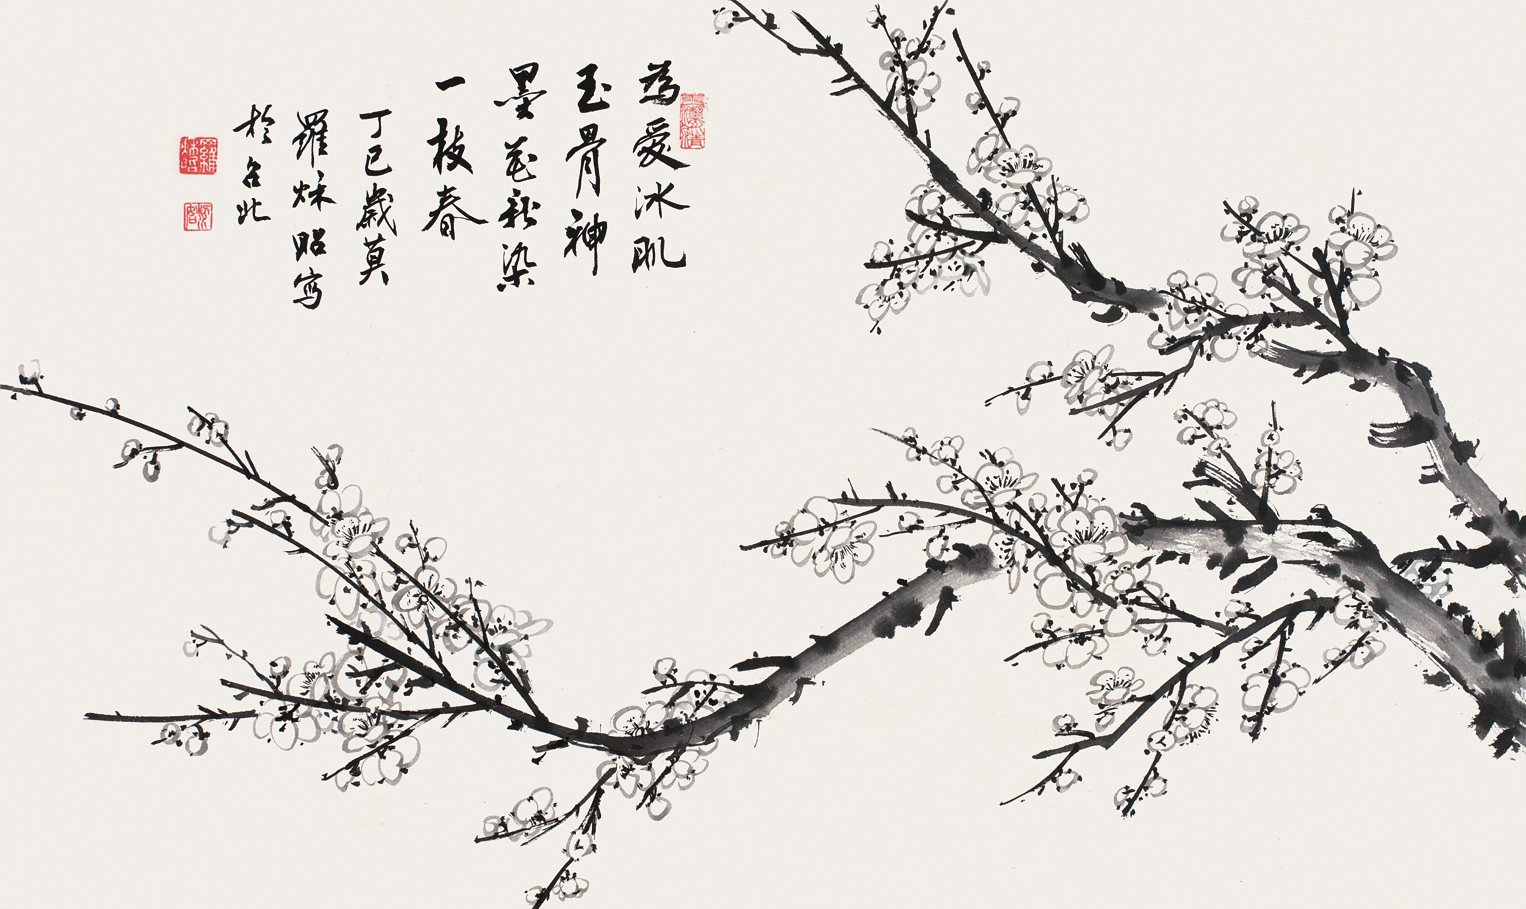 為愛冰肌
玉骨神
墨花新染
一枝春
丁巳歲莫
羅烁昭寫
於台北